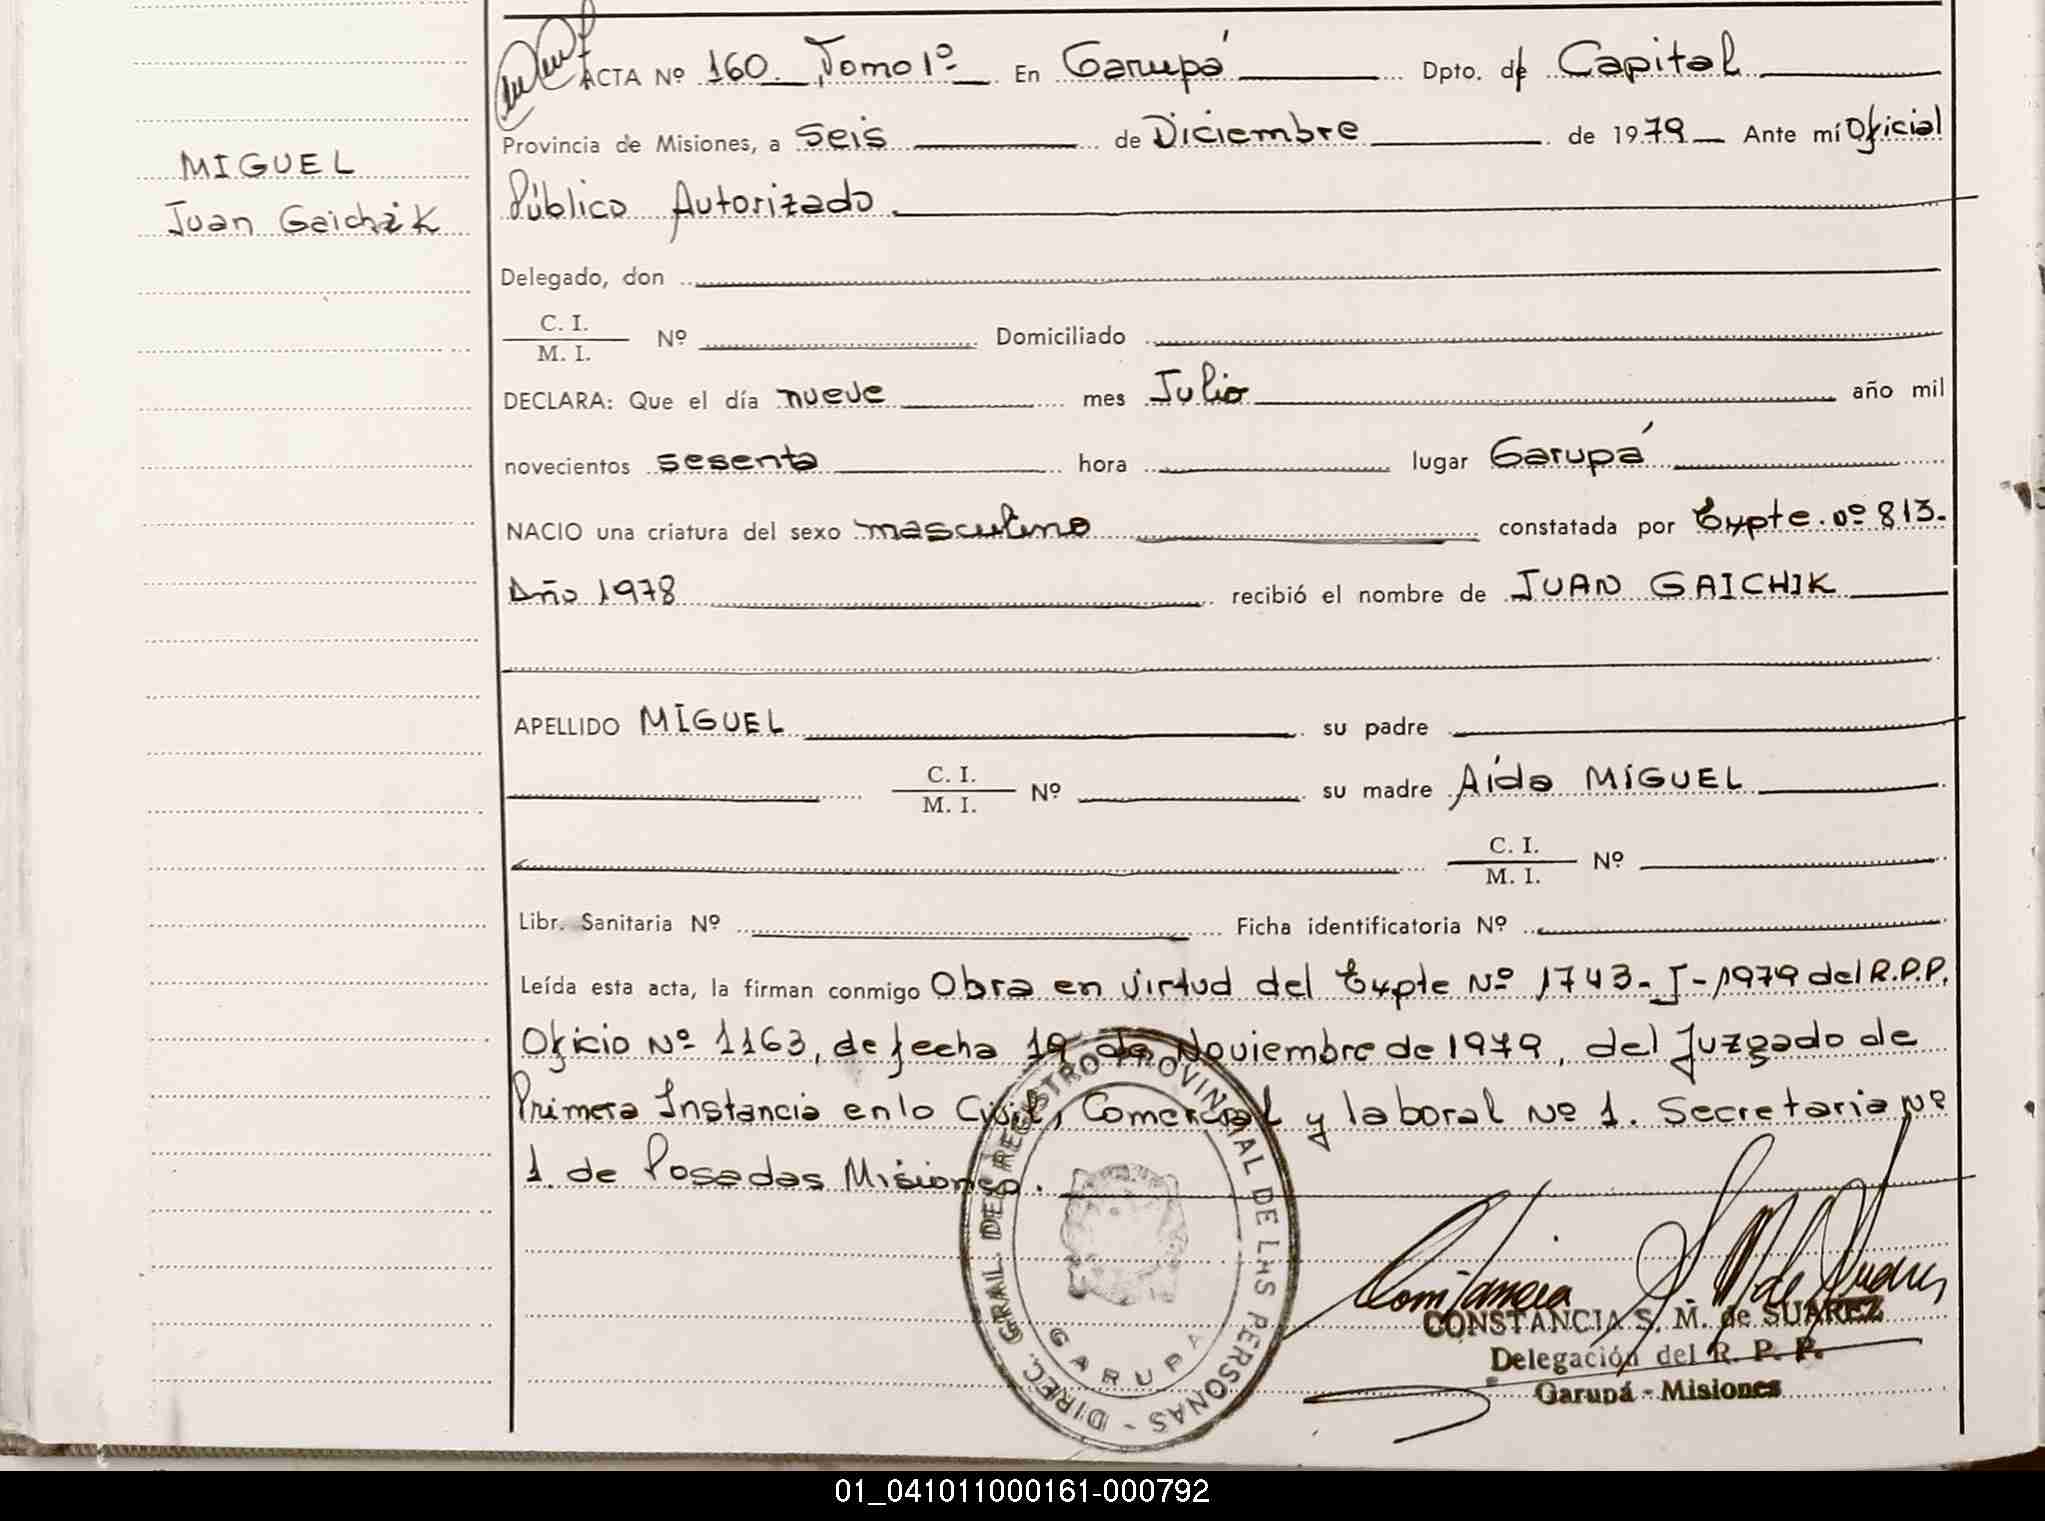 ACTA Nº 160. Tomo 1º En Garupá Dpto. de Capital
Provincia de Misiones, a seis de Diciembre de 1979 Ante mí Oficial
Público Autorizado.
MIGUEL
Juan Gaichik
Delegado, don
C. I.
M. I.
Nº Domiciliado
DECLARA: Que el día nueve mes Julio año mil
novecientos sesenta hora lugar Garupá
NACIO una criatura del sexo masculino constatada por Expte. nº 813-
Año 1978 recibió el nombre de JUAN GAICHIK
APELLIDO MIGUEL su padre
C. I.
M. I.
Nº su madre Aída MIGUEL
C. I.
M. I.
Nº
Libr. Sanitaria Nº Ficha identificatoria Nº
Leída esta acta, la firman conmigo Obra en virtud del Expte Nº 1743-I-1979 del R.P.P.
Oficio Nº 1163, de fecha 19 de Noviembre de 1979, del Juzgado de
Primera Instancia en lo Civil, Comercial y laboral Nº 1. Secretaria Nº
1. de Posadas Misiones.
DIREC. GRAL. DEL REGISTRO PROVINCIAL DE LAS PERSONAS -
GARUPA
CONSTANCIA S. M. de SUAREZ
Delegación del R. P. P.
Garupá - Misiones
01_041011000161-000792